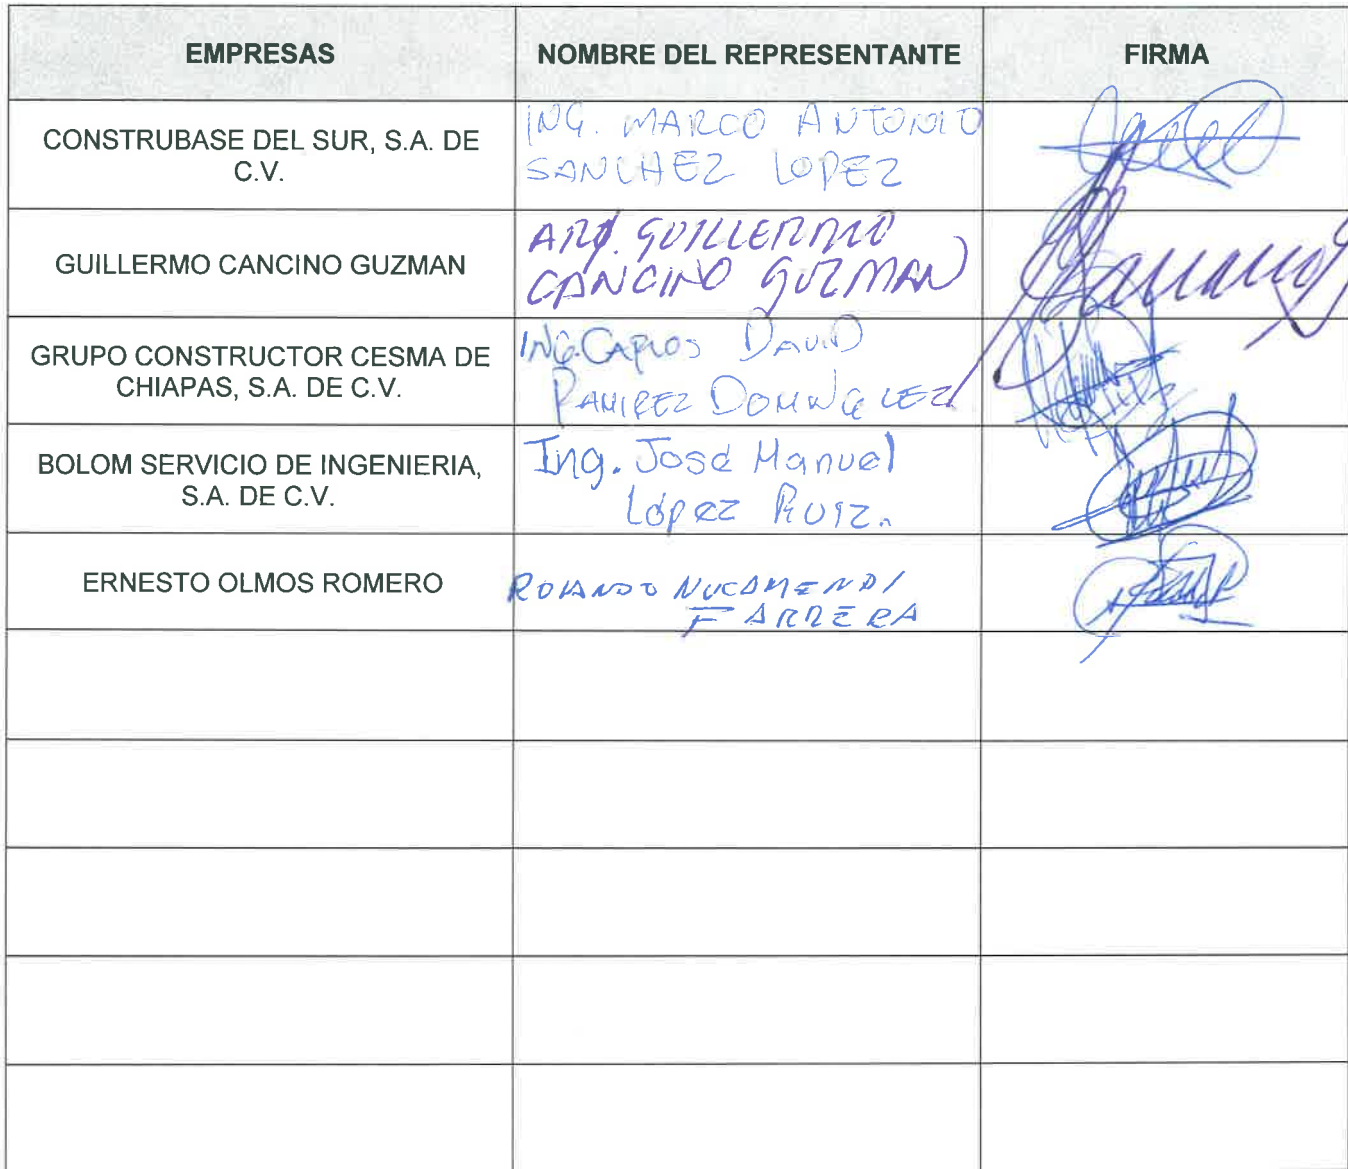 EMPRESAS NOMBRE DEL REPRESENTANTE FIRMA
CONSTRUBASE DEL SUR, S.A. DE
C.V.
ING. MARCO ANTONIO
SANCHEZ LOPEZ
GUILLERMO CANCINO GUZMAN
ARQ. GUILLERMO
CANCINO GUZMAN
GRUPO CONSTRUCTOR CESMA DE
CHIAPAS, S.A. DE C.V.
ING. CARLOS DAVID
RAMIREZ DOMINGUEZ
BOLOM SERVICIO DE INGENIERIA,
S.A. DE C.V.
Ing. José Manuel
López Ruiz.
ERNESTO OLMOS ROMERO
ROLANDO NUCAMENDI
FARRERA